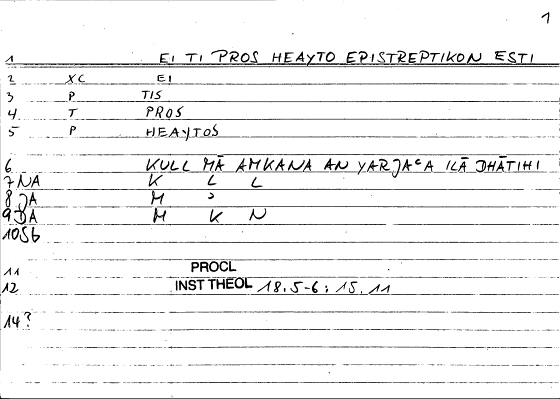 1
1 EI TI PROS HEAYTO EPISTREPTIKON ESTI
2 XC EI
3 P TIS
4 T PROS
5 P HEAYTOS
6 KULL MĀ AMKANA AN YARJAᶜA ILĀ DHĀTIHI
7 NA K L L
8 JA M
9 DA M K N
10 SB
11 PROCL
12 INST THEOL 18.5-6: 15.11
14?